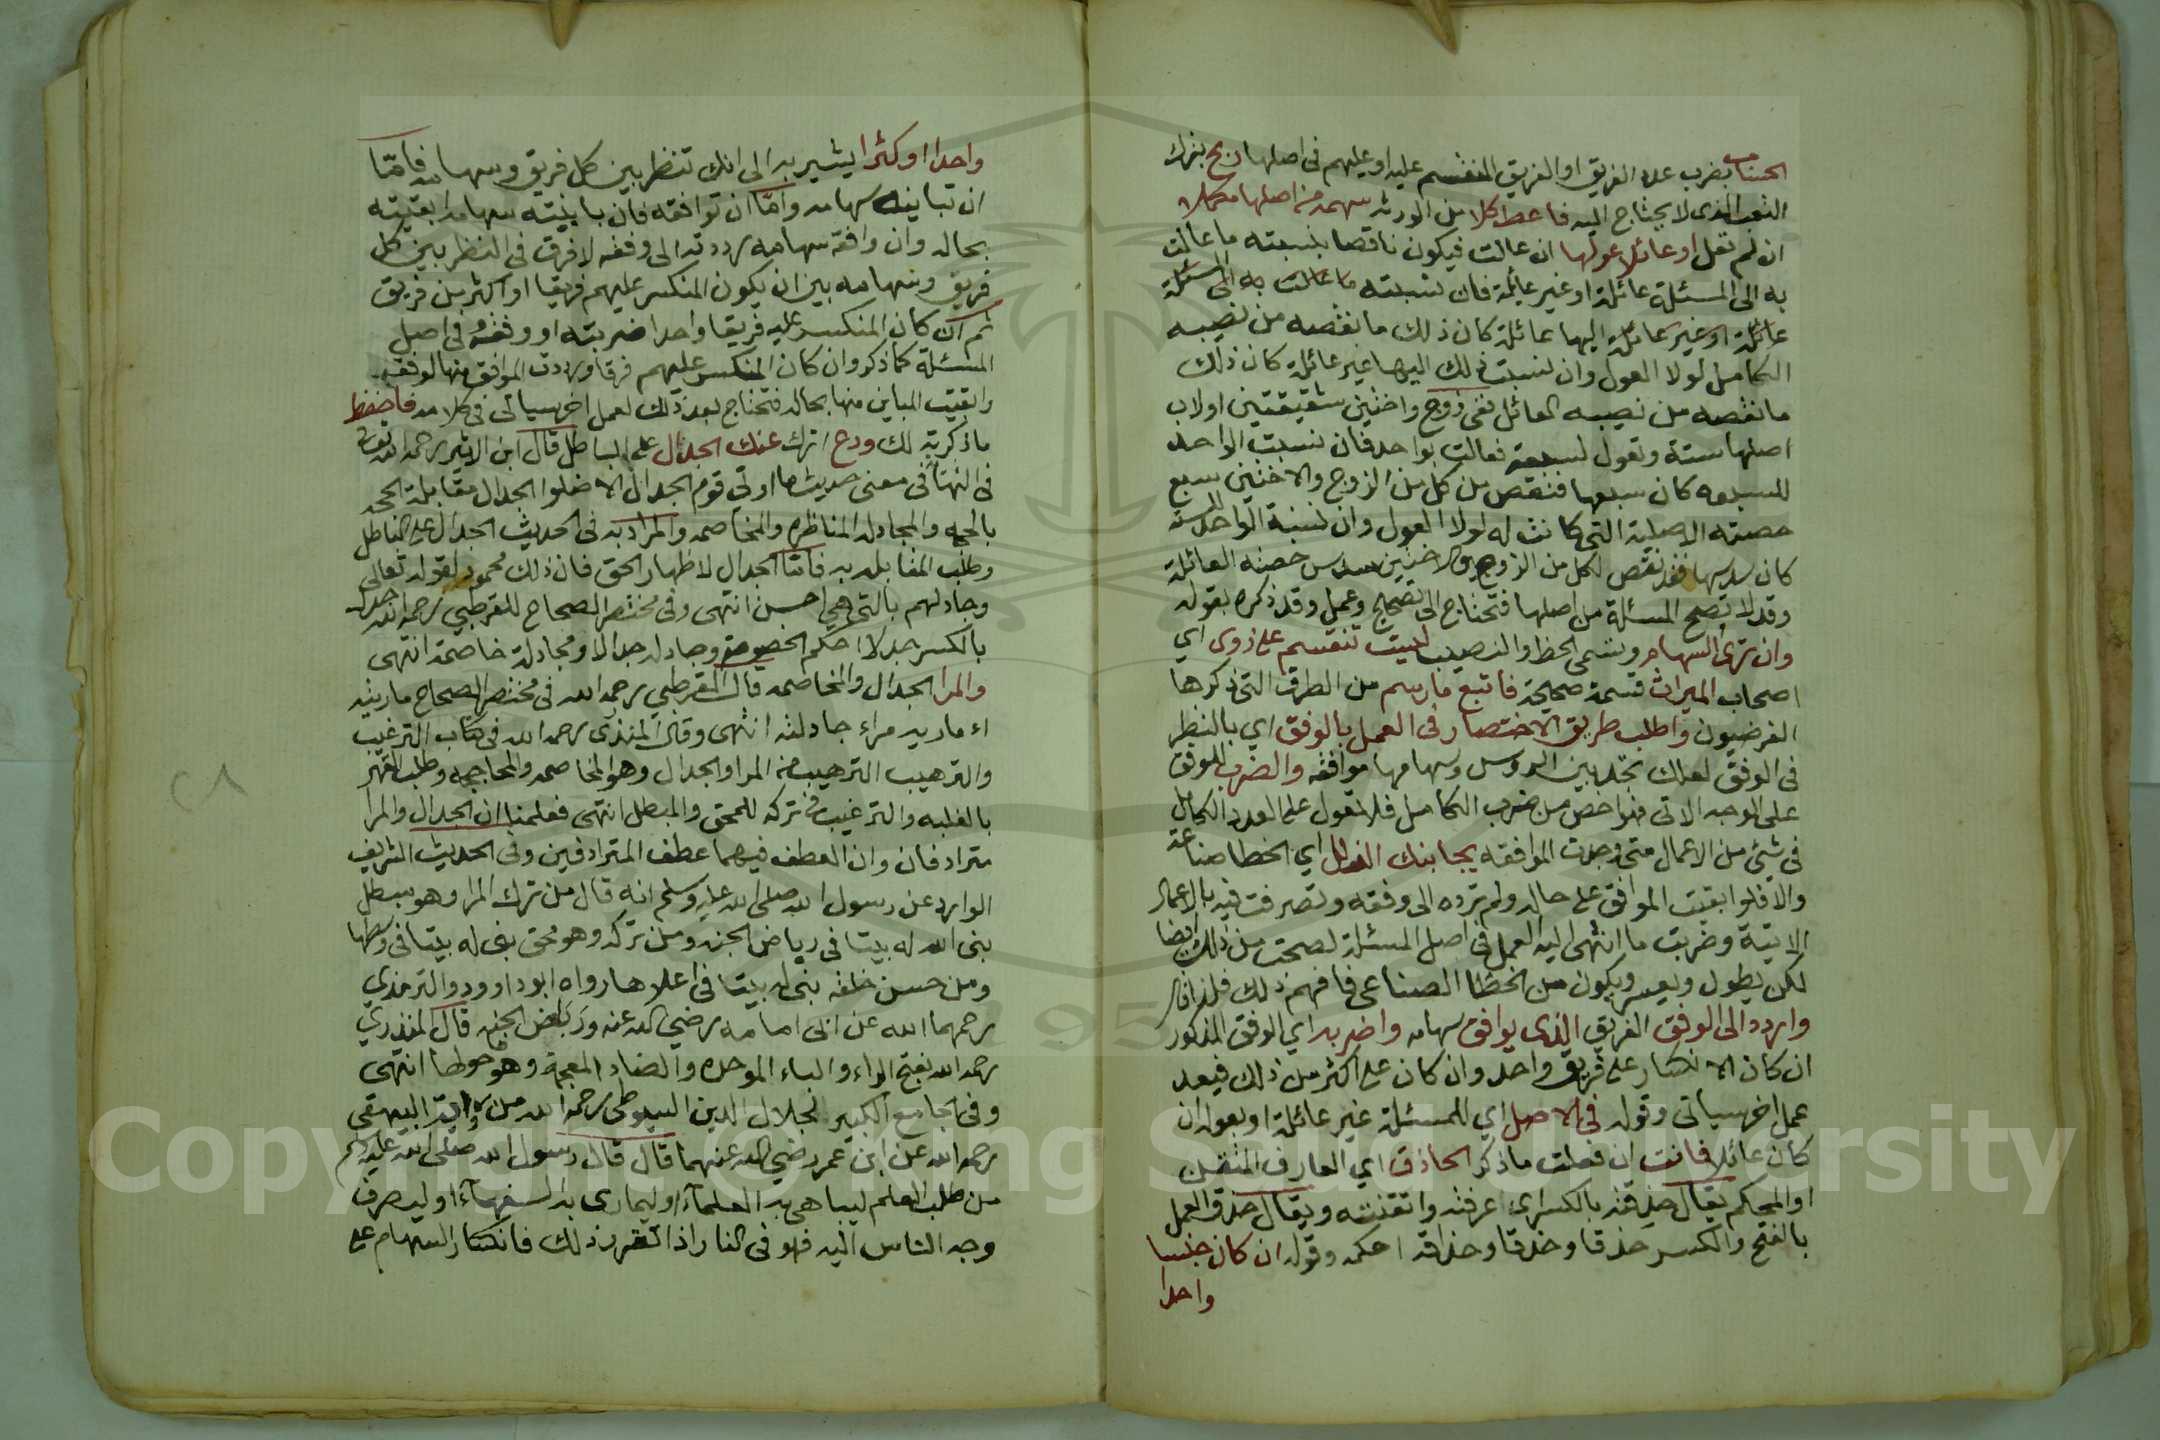 الحساب بضرب عدد الفريق او الفريق المنقسم عليه او عليهم في اصلها ربح بترك
التعب الذي لا يحتاج اليه فاعط كلا من الورثه سهمه من اصلها مكملا
ان لم تعل او عائلا عولها ان عالت فيكون ناقصا بنسبته ما عالت
به الى المسئلة عائلة او غير عائلة فان نسبته ما عالت به الى المسئلة
عائلة او غير عائلة اليها عائلة كان ذلك ما نقصه من نصيبه
الكامل لولا العول وان نسبت ذلك اليها غير عائلة كان ذلك
ما نقصه من نصيبه العائل ففي زوج واختين شقيقتين او لاب
اصلها ستة وتعول لسبعة فعالت بواحد فان نسبت الواحد
للسبعه كان سبعها فنقص من كل من الزوج والاختين سبع
حصته الاصلية التي كانت له لولا العول وان نسبة الواحد للستة
كان سدسها فقد نقص لكل من الزوج والاختين سدس حصته العائلة
وقد لا تصح المسئلة من اصلها فتحتاج الى تصحيح وعمل وقد ذكره بقوله
وان ترى السهام وتسمى الحظ والنصيب ليست تنقسم على ذوى اي
اصحاب الميراث قسمة صحيحة فاتبع ما رسم من الطرق التي ذكرها
الفرضيون واطلب طريق الاختصار في العمل بالوفق اي بالنظر
في الوفق لعلك تجد بين الروس وسهامها موافقه والضرب للوفق
على الوجه الاتي فهو احص من ضرب الكامل فلا تعول على العدد الكامل
في شيئ من الاعمال متى وجدت الموافقه يجانبك الزلل اي الخطا صناعة
والا فلو ابقيت الموافق على حاله ولم ترده الى وفقه وتصرفت فيه بالاعمال
الاتية وضربت ما انتهى اليه العمل في اصل المسئلة لصحت من ذلك ايضا
لكن يطول ويعسر ويكون من الخطا الصناعي فافهم ذلك فلذا قال
واردد الى الوفق الفريق الذي يوافق سهامه واضربه اي الوفق المذكور
ان كان الانكسار على فريق واحد وان كان على اكثر من ذلك فبعد
عمل اخر سياتى وقوله في الاصل اي للمسئلة غير عائلة او بعوله ان
كان عائلا فانت ان فعلت ما ذكر الحاذق اي العارف المتقن
او المحكم يقال حذقته بالكسر اي عرفته واتقنته ويقال حذق العمل
بالفتح والكسر حذقا وحذقا وحذاقه احكمه وقوله ان كان جنسا
واحدا
واحدا او كثرا يشير به الى انك تنظر بين كل فريق وسهامه فاما
ان تباينه سهامه واما ان توافقه فان باينته سهامه ابقيته
بحاله وان وافقه سهامه رددته الى وفقه لا فرق في النظر بين كل
فريق وسهامه بين ان يكون المنكسر عليهم فريقا او اكثر من فريق
ثم ان كان المنكسر عليه فريقا واحدا ضربته او وفقه في اصل
المسئلة كما ذكر وان كان المنكسر عليهم فرقا ورددت الموافق منها لوفقه
وابقيت المباين منها بحاله فتحتاج بعد ذلك لعمل اخر سياتى في كلامه فاحفظ
ما ذكرته لك ودع اترك عنك الجدال على الباطل قال ابن الاثير رحمه الله تعالى
في النهاية في معنى حديث ما اوتي قوم الجدال الا ضلوا الجدال مقابلة الحجه
بالحجه والمجادله المناظره والمخاصمه والمراد به في الحديث الجدال على الباطل
وطلب المغالبه به فاما الجدال لاظهار الحق فان ذلك محمود لقوله تعالى
وجادلهم بالتي هي احسن انتهى وفي مختصر الصحاح للقرطبي رحمه الله جدل
بالكسر جدلا احكم الخصومه وجادله جدالا ومجادلة خاصمه انتهى
والمرا الجدال والمخاصمه قال القرطبي رحمه الله في مختصر الصحاح ماريته
اماريه مراء جادلته انتهى وقال المنذرى رحمه الله في كتاب الترغيب
والترهيب الترهيب من المرا والجدال وهو المخاصمه والمحاججه وطلب القهر
بالغلبه والترغيب في تركه للمحق والمبطل انتهى فعلمنا ان الجدال والمرا
مترادفان وان العطف فيهما عطف المترادفين وفي الحديث الشريف
الوارد عن رسول الله صلى الله عليه وسلم انه قال من ترك المرا وهو مبطل
بنى الله له بيتا في رياض الجنه ومن تركه وهو محق بنى له بيتا في وسطها
ومن حسن خلقه بنى له بيتا في اعلاها رواه ابو داوود والترمذي
رحمهما الله عن ابى امامه رضي الله عنه وربض الجنه قال المنذري
رحمه الله بفتح الراء والباء الموحده والضاد المعجمة وهو حولها انتهى
وفي الجامع الكبير لجلال الدين السيوطى رحمه الله من رواية البيهقي
رحمه الله عن ابن عمر رضي الله عنهما قال قال رسول الله صلى الله عليه وسلم
من طلب العلم ليباهي به العلماء او ليمارى به السفهآء او ليصرف
وجه الناس اليه فهو في النار اذا تقرر ذلك فانكسار السهام على
٢٨
Copyright © King Saud University
1957